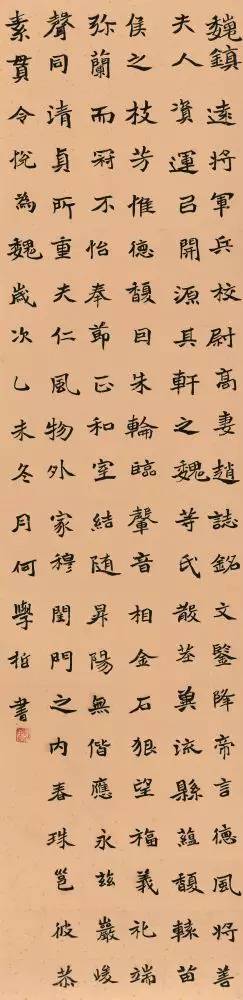 魏鎮遠將軍兵校尉高妻趙誌銘文鑒降帝言德風將善
夫人資運啟開源其軒之魏等氏散莖冀流縣蘊馥轅苗
侯之枝芳惟德馥日朱輪臨馨音相金石狠望福義礼端
弥蘭而冠不怡奉節正和室結随昇陽無偕應永兹巖峻
聲同清貞所重夫仁風物外家穆閨門之内春珠邕彼恭
素貫令悦為魏歲次乙未冬月何學 書